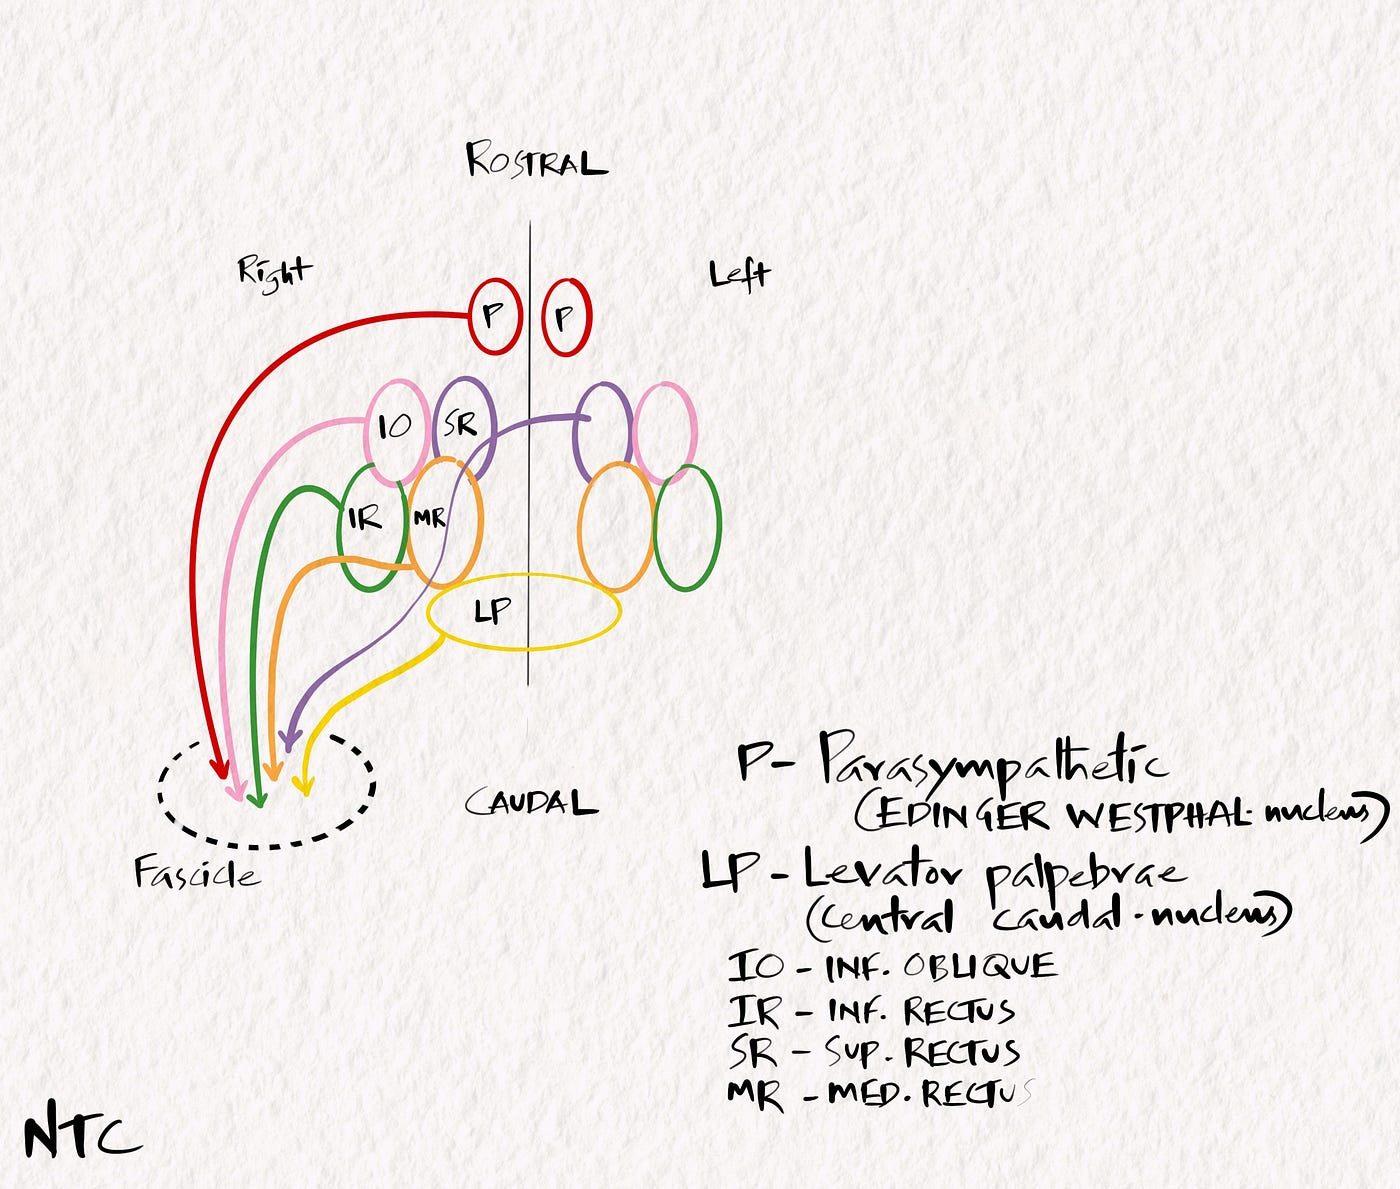 ROSTRAL
Right
Left
P
P
IO
SR
IR
MR
LP
CAUDAL
Fascicle
P- Parasympathetic
(EDINGER WESTPHAL nucleus)
LP - Levator palpebrae
(central caudal nucleus)
IO - INF. OBLIQUE
IR - INF. RECTUS
SR - SUP. RECTUS
MR - MED. RECTUS
NTC